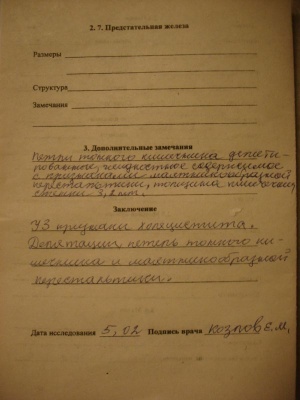 2. 7. Предстательная железа
Размеры
Структура
Замечания
3. Дополнительные замечания
Петли тонкого кишечника диляти-
рованные, жидкостное содержимое
с признаками маятникообразной
перестальтики, толщина кишечной
стенки 3,2 мм.
Заключение
УЗ признаки холецистита.
Дилятации петель тонкого ки-
шечника и маятникообразной
перестальтики.
Дата исследования 5,02 Подпись врача Козлов Е.М.